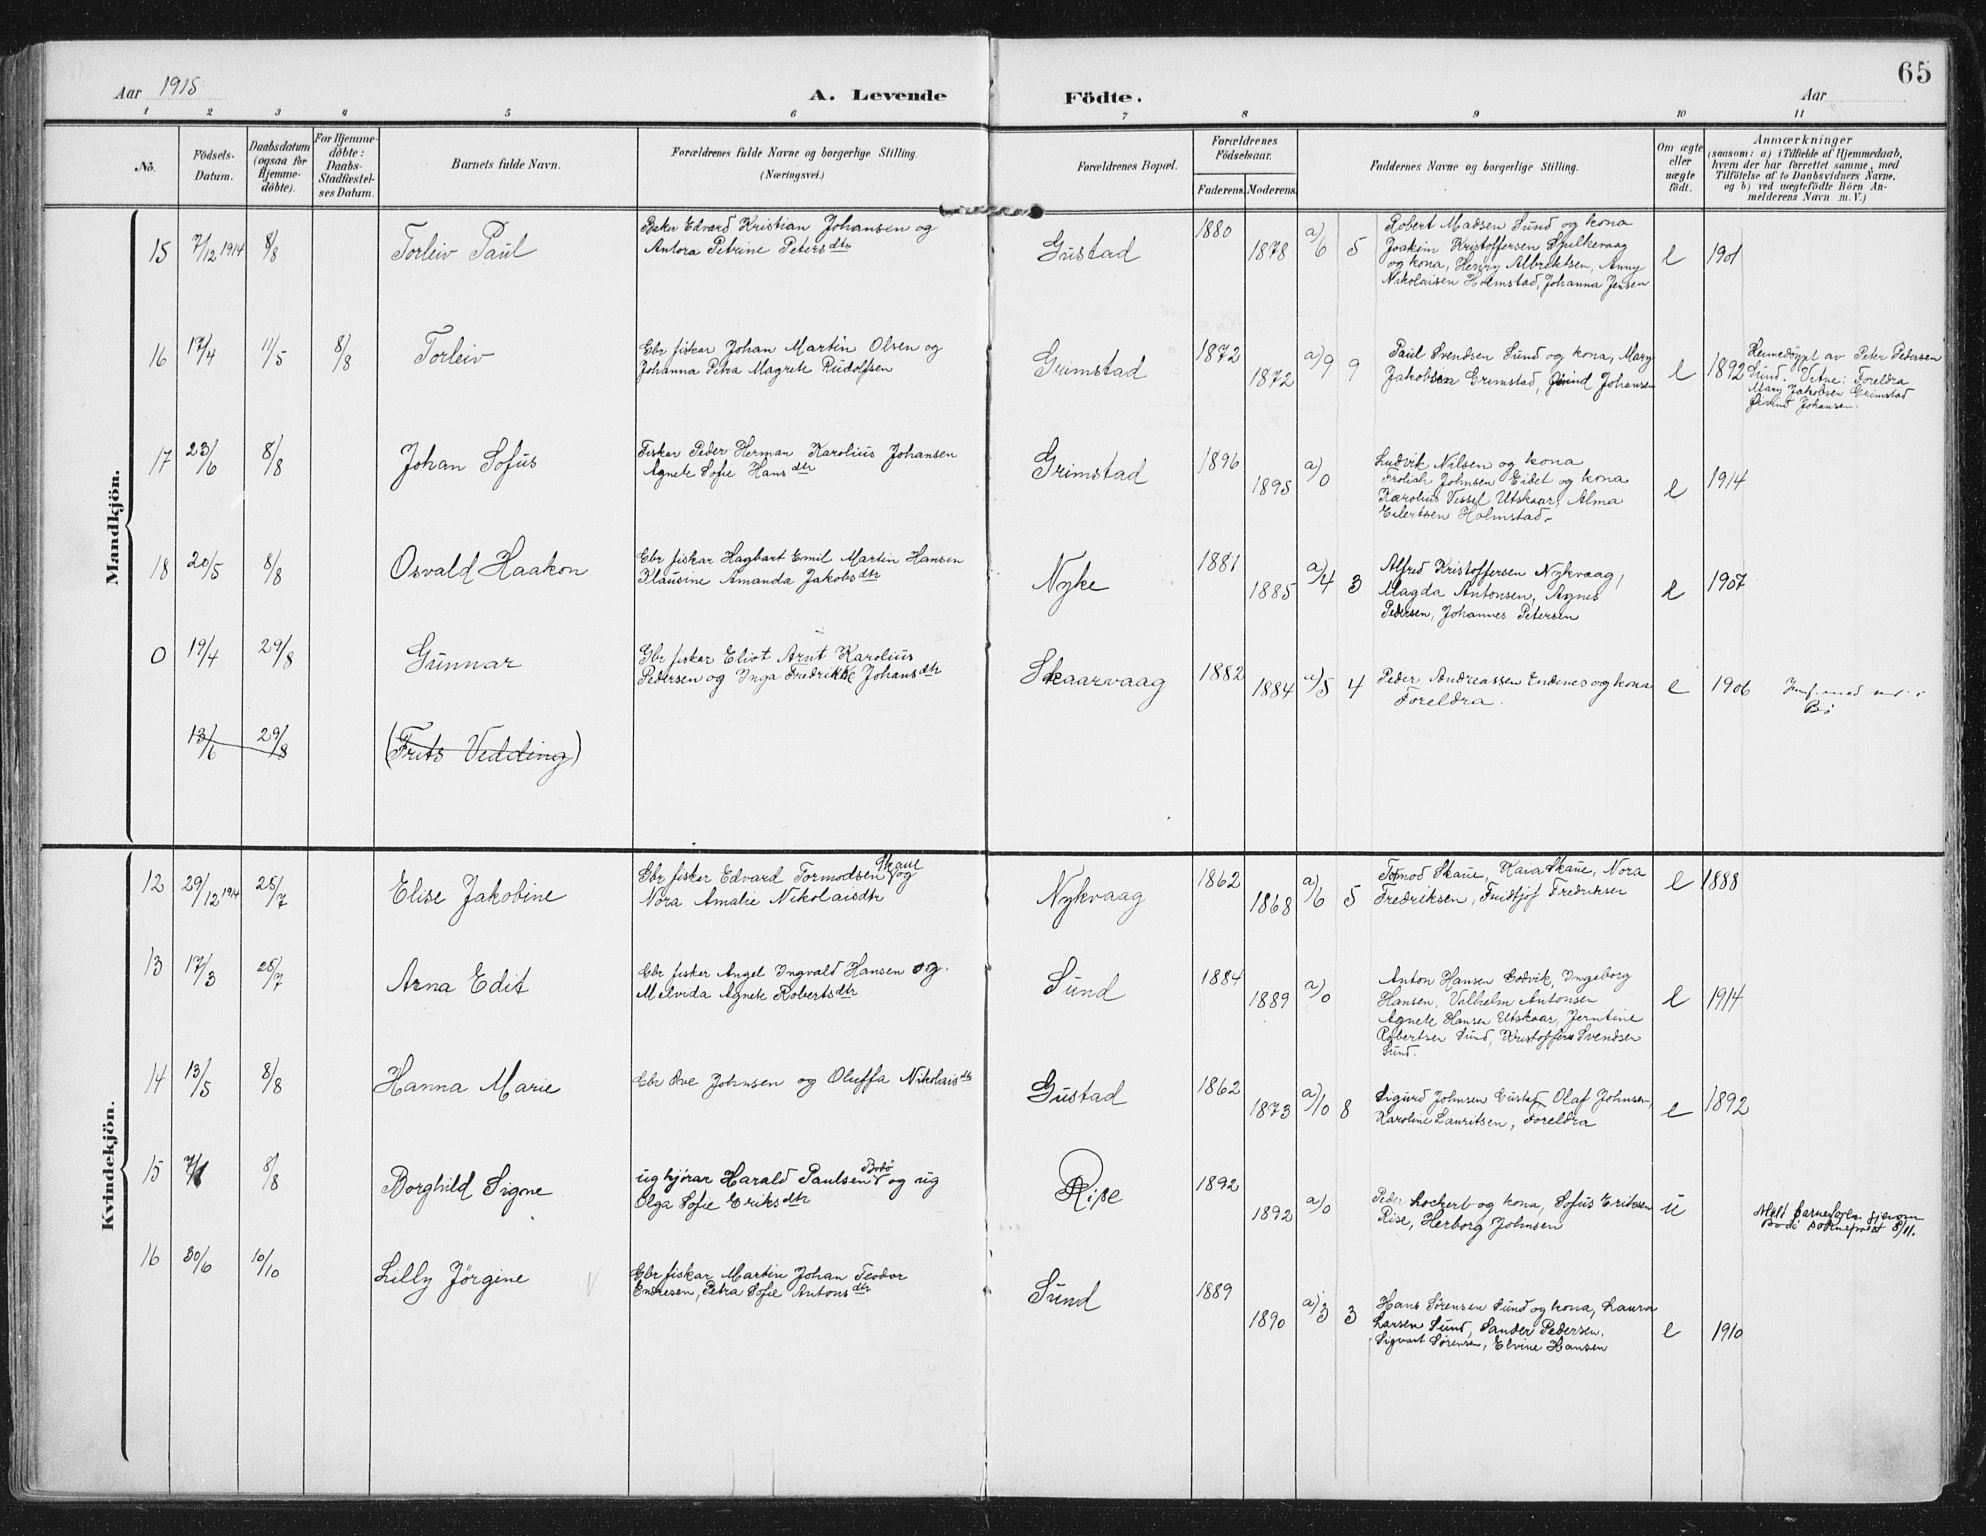 65
Aar 1915 A. Levende Födte. Aar
1 2 3 4 5 6 7 8 9 10 11
No. Födsels-Datum. Daabsdatum (ogsaa for Hjemme-döbte). For Hjemme-döbte: Daabs-Stadfæstel-ses Datum. Barnets fulde Navn. Forældrenes fulde Navne og borgerlige Stilling. (Næringsvei.) Forældrenes Bopæl. Forældrenes Födselsaar. Faderens. Moderens. Faddernes Navne og borgerlige Stilling. Om ægte eller uægte födt. Anmærkninger
(saasom: a) i Tilfælde af Hjemmedaab,
hvem der har forrettet samme, med
Tilföielse af to Daabsvidners Navne,
og b) ved uægtefödte Börn An-
melderens Navn m. V.)
Mandkjön.
15 7/12 1914 8/8 Torleiv Paul
Baker Edvard Kristian Johansen og
Antora Petrine Petersdtr
Gustad 1880 1878 a/6 5
Robert Madsen Sund og kona
Joakim Kristoffersen Spulkevaag
og kona, Henry Albrektsen, Anny
Nikolaisen Holmstad, Johanna Jensen
e 1901
16 17/4 11/5 8/8 Torleiv
Gbr fiskar Johan Martin Olsen og
Johanna Petra Magrete Rudolfsen
Grimstad 1872 1872 a/9 9
Paul Svendsen Sund og kona, Mary
Jakobsen Grimstad, Øivind Johansen
e 1892
Heimedøypt av Peter Pedersen
Sund. Vitne: Foreldra
Mary Jakobsen Grimstad
Øivind Johansen.
17 23/6 8/8 Johan Sofus
Fiskar Peder Herman Karolius Johansen
Agnete Sofie Hansdtr
Grimstad 1896 1895 a/0
Ludvik Nilsen og kona
Frolich Johnsen Eidet og kona
Karolius Vessel Utskaar, Alma
Eilertsen Holmstad.
e 1914
18 20/5 8/8 Osvald Haakon
Gbr fiskar Hagbart Emil Martin Hansen
Klausine Amanda Jakobsdtr
Nyke 1881 1885 a/4 3
Alfred Kristoffersen Nykvaag,
Magda Antonsen, Agnes
Pedersen, Johannes Petersen
e 1907
0 19/4 29/8 Gunnar
Gbr fiskar Eliot Arnt Karolius
Pedersen og Inga Fredrikke Johansdtr
Skaarvaag 1882 1884 a/5 4
Peder Andreassen Endenes og kona
Foreldra.
e 1906
Bø
13/6 29/8 (Frits Vedding)
Kvindekjön.
12 29/12 1914 25/7 Elise Jakobine
Gbr fisker Edvard Tormodsen Skaue og
Nora Amalie Nikolaisdtr
Nykvaag 1862 1868 a/6 5
Tomod Skaue, Kaia Skaue, Nora
Fredriksen, Fridtjof Fredriksen
e 1888
13 17/3 25/7 Arna Edit
Gbr fisker Angel Ingvald Hansen og
Melvida Agnete Robertsdtr
Sund 1884 1889 a/0
Anton Hansen Godvik, Ingeborg
Hansen, Vilhelm Antonsen
Agnete Hansen Utskaar, Jerntine
Robertsen Sund, Kristoffer Svendsen
Sund.
e 1914
14 13/5 8/8 Hanna Marie
Gbr Ove Johnsen og Oluffa Nikolaisdtr
Gustad 1862 1873 a/10 8
Sigurd Johnsen Gustad, Olaf Johnsen,
Karoline Lauritsen, Foreldra
e 1892
15 7/1 8/8 Borghild Signe
ug hjørar Harald Paulsen Bodø og ug
Olga Sofie Eriksdtr
Rise 1892 1892 a/0
Peder Lockert og kona, Sofus Eriksen
Rise, Herborg Johnsen
u
Bodø sokneprest 8/11.
16 30/6 10/10 Lilly Jörgine
Gbr fiskar Martin Johan Teodor
Endresen, Petra Sofie Antonsdtr
Sund 1889 1890 a/3 3
Hans Sørensen Sund og kona, Laura
Larsen Sund, Sander Pedersen,
Sigvart Sørensen, Elvine Hansen
e 1910